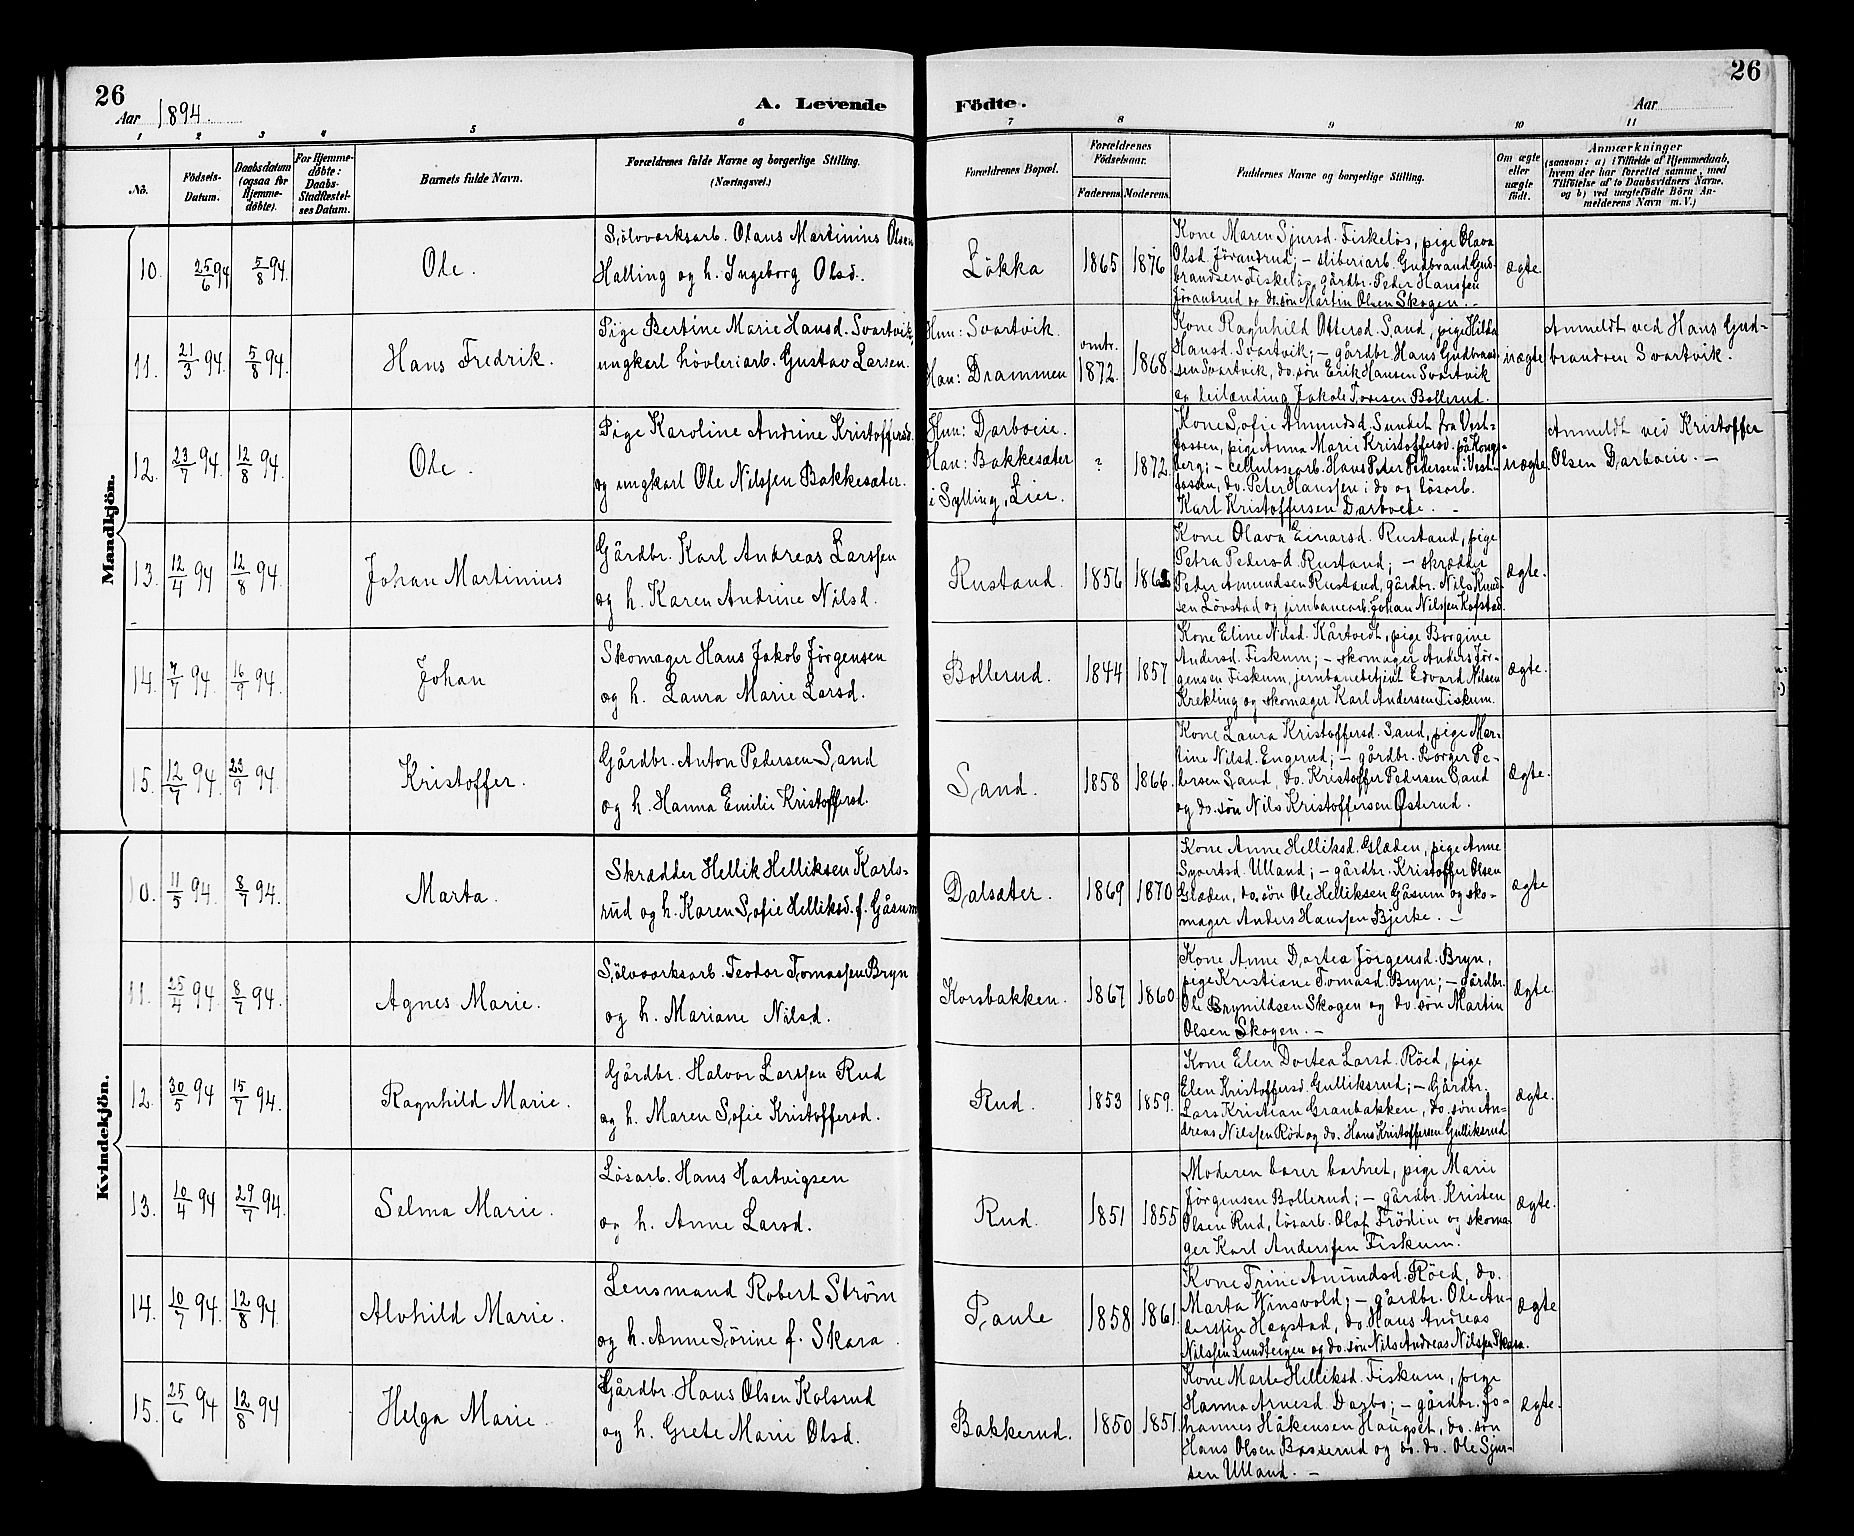 26
Aar 1894.
A. Levende
Födte.
Aar
26
1 2 3 4 5 6 7 8 9 10 11
No.
Födsels-
Datum.
Daabsdatum
(ogsaa for
Hjemme-
döbte).
For Hjemme-
döbte:
Daabs-
Stadfæstel-
ses Datum.
Barnets fulde Navn.
Forældrenes fulde Navne og borgerlige Stilling.
(Næringsvei.)
Forældrenes Bopæl.
Forældrenes
Födselsaar.
Faderens Moderens.
Faddernes Navne og borgerlige Stilling.
Om ægte
eller
uægte
födt.
Anmærkninger
(saasom: a) i Tilfælde af Hjemmedaab,
hvem der har forrettet samme, med
Tilföielse af to Daabsvidners Navne,
og b) ved uægtefödte Börn An-
melderens Navn m. V.)
Mandkjön.
10.
25/6 94
5/8 94.
Ole.
Sölvværksarb. Olaus Martinius Olsen
Halling og h. Ingeborg Olsd.
Lökka
1865
1876
Kone Maren Sjursd. Fiskelös, pige Olava
Olsd. Jörandrud; – sliberiarb. Gudbrand Gud-
brandsen Fiskelös, gårdbr. Peder Hanssen
Jörandrud og do. sön Martin Olsen Skogen. –
ægte.
11.
21/3 94.
5/8 94.
Hans Fredrik.
Pige Bertine Marie Hansd. Svartvik,
ungkarl hövleriarb. Gustav Larsen.
Hun: Svartvik.
Han: Drammen
omtr.
1872.
1868.
Kone Ragnhild Ottersd. Sand, pige Hilda
Hansd. Svartvik; – gårdbr. Hans Gudbrand-
sen Svartvik, do. sön Erik Hansen Svartvik
og leilænding Jakob Toresen Bollerud.
uægte
Anmeldt ved Hans Gud-
brandsen Svartvik.
12.
23/7 94.
12/8 94.
Ole.
Pige Karoline Andrine Kristoffersd.
og ungkarl Ole Nilssen Bakkesæter.
Hun: Darboeie.
Han: Bakkesæter
i Sylling, Lier.
?
1872.
Kone Sofie Amundsd. Sundet fra Vest-
fossen, pige Anna Marie Kristoffersd. på Kongs-
berg; – cellulosearb. Hans Peter Pedersen i Vest-
fossen, do. Peter Hanssen i do og lösarb.
Karl Kristoffersen Darboeie. –
uægte.
Anmeldt ved Kristoffer
Olsen Darboeie. –
13.
12/4 94
12/8 94.
Johan Martinius
Gårdbr. Karl Andreas Larssen
og h. Karen Andrine Nilsd.
Rustand.
1856
Kone Olava Einarsd. Rustand, pige
Petra Pedersd. Rustand; – skrædder
Peder Amundsen Rustand, gårdbr. Nils Knud-
sen Lövstad og jernbanearb. Johan Nilssen Kofstad.
ægte.
14.
7/7 94.
16/9 94.
Johan
Skomager Hans Jakob Jörgensen
og h. Laura Marie Larsd.
Bollerud.
1844
1857
Kone Eline Nilsd. Kårtvedt, pige Borgine
Andersd. Fiskum; – skomager Anders Jör-
gensen Fiskum, jernbanebetjent Edvard Nilsen
Krekling og skomager Karl Andersen Fiskum.
ægte.
15.
12/7 94.
23/9 94.
Kristoffer.
Gårdbr. Anton Pedersen Sand
og h. Hanna Emilie Kristoffersd.
Sand.
1858
1866.
Kone Laura Kristoffersd. Sand, pige Mar-
tine Nilsd. Engerud; – gårdbr. Borger Pe-
dersen Sand, do. Kristoffer Pedersen Sand
og do. sön Nils Kristoffersen Østerud.
ægte.
Kvindekjön.
10.
11/5 94.
8/7 94.
Marta.
Skrædder Hellik Helliksen Karls-
rud og h. Karen Sofie Helliksd. f. Gåsum
Dalsæter.
1869
1870
Kone Anne Helliksd. Glæden, pige Anne
Syvertsd. Ulland; – gårdbr. Kristoffer Olsen
Glæden, do. sön Ole Helliksen Gåsum og sko-
mager Anders Hanssen Bjerke. –
ægte
11.
25/4 94.
8/7 94.
Agnes Marie.
Sölvværksarb. Teodor Tomassen Bryn
og h. Mariane Nilsd.
Korsbakken.
1867
1860
Kone Anne Dortea Jörgensd. Bryn,
pige Kristiane Tomasd. Bryn; – gårdbr.
Ole Brynildsen Skogen og do. sön Martin
Olsen Skogen. –
ægte.
12.
30/5 94
15/7 94.
Ragnhild Marie.
Gårdbr. Halvor Larssen Rud
og h. Maren Sofie Kristoffersd.
Rud.
1853
1859.
Kone Elen Dortea Larsd. Röed, pige
Elen Kristoffersd. Gulliksrud; – Gårdbr.
Lars Kristian Granbakken, do. sön An-
dreas Nilssen Röd og do. Hans Kristoffersen Gulliksrud
ægte.
13.
10/4 94
29/7 94.
Selma Marie.
Lösarb. Hans Hartvigsen
og h. Anne Larsd.
Rud.
1851
1855
Moderen bærer barnet, pige Marie
Jörgensen Bollerud; – gårdbr. Kristen
Olsen Rud, lösarb. Olaf Frödin og skoma-
ger Karl Anderssen Fiskum.
ægte.
14.
10/7 94.
12/8 94
Alvhild Marie.
Lensmand Robert Ström
og h. Anne Sörine f. Skara.
Paule
1858
1861.
Kone Trine Amundsd. Röed, do.
Marta Vinsvold; – gårdbr. Ole An-
derssen Hagstad, do. Hans Andreas
Nilssen Lundteigen og do. sön Nils Andreas Nilssen Skara.
ægte
15.
25/6 94
12/8 94
Helga Marie.
Gårdbr. Hans Olsen Kolsrud
og h. Grete Marie Olsd.
Bakkerud.
1850
1851.
Kone Marte Helliksd. Fiskum, pige
Hanna Arnesd. Darbo; – gårdbr. Jo-
hannes Håkensen Haugset, do. sön
Hans Olsen Basserud og do. do. Ole Sjur-
sen Ulland. –
ægte.